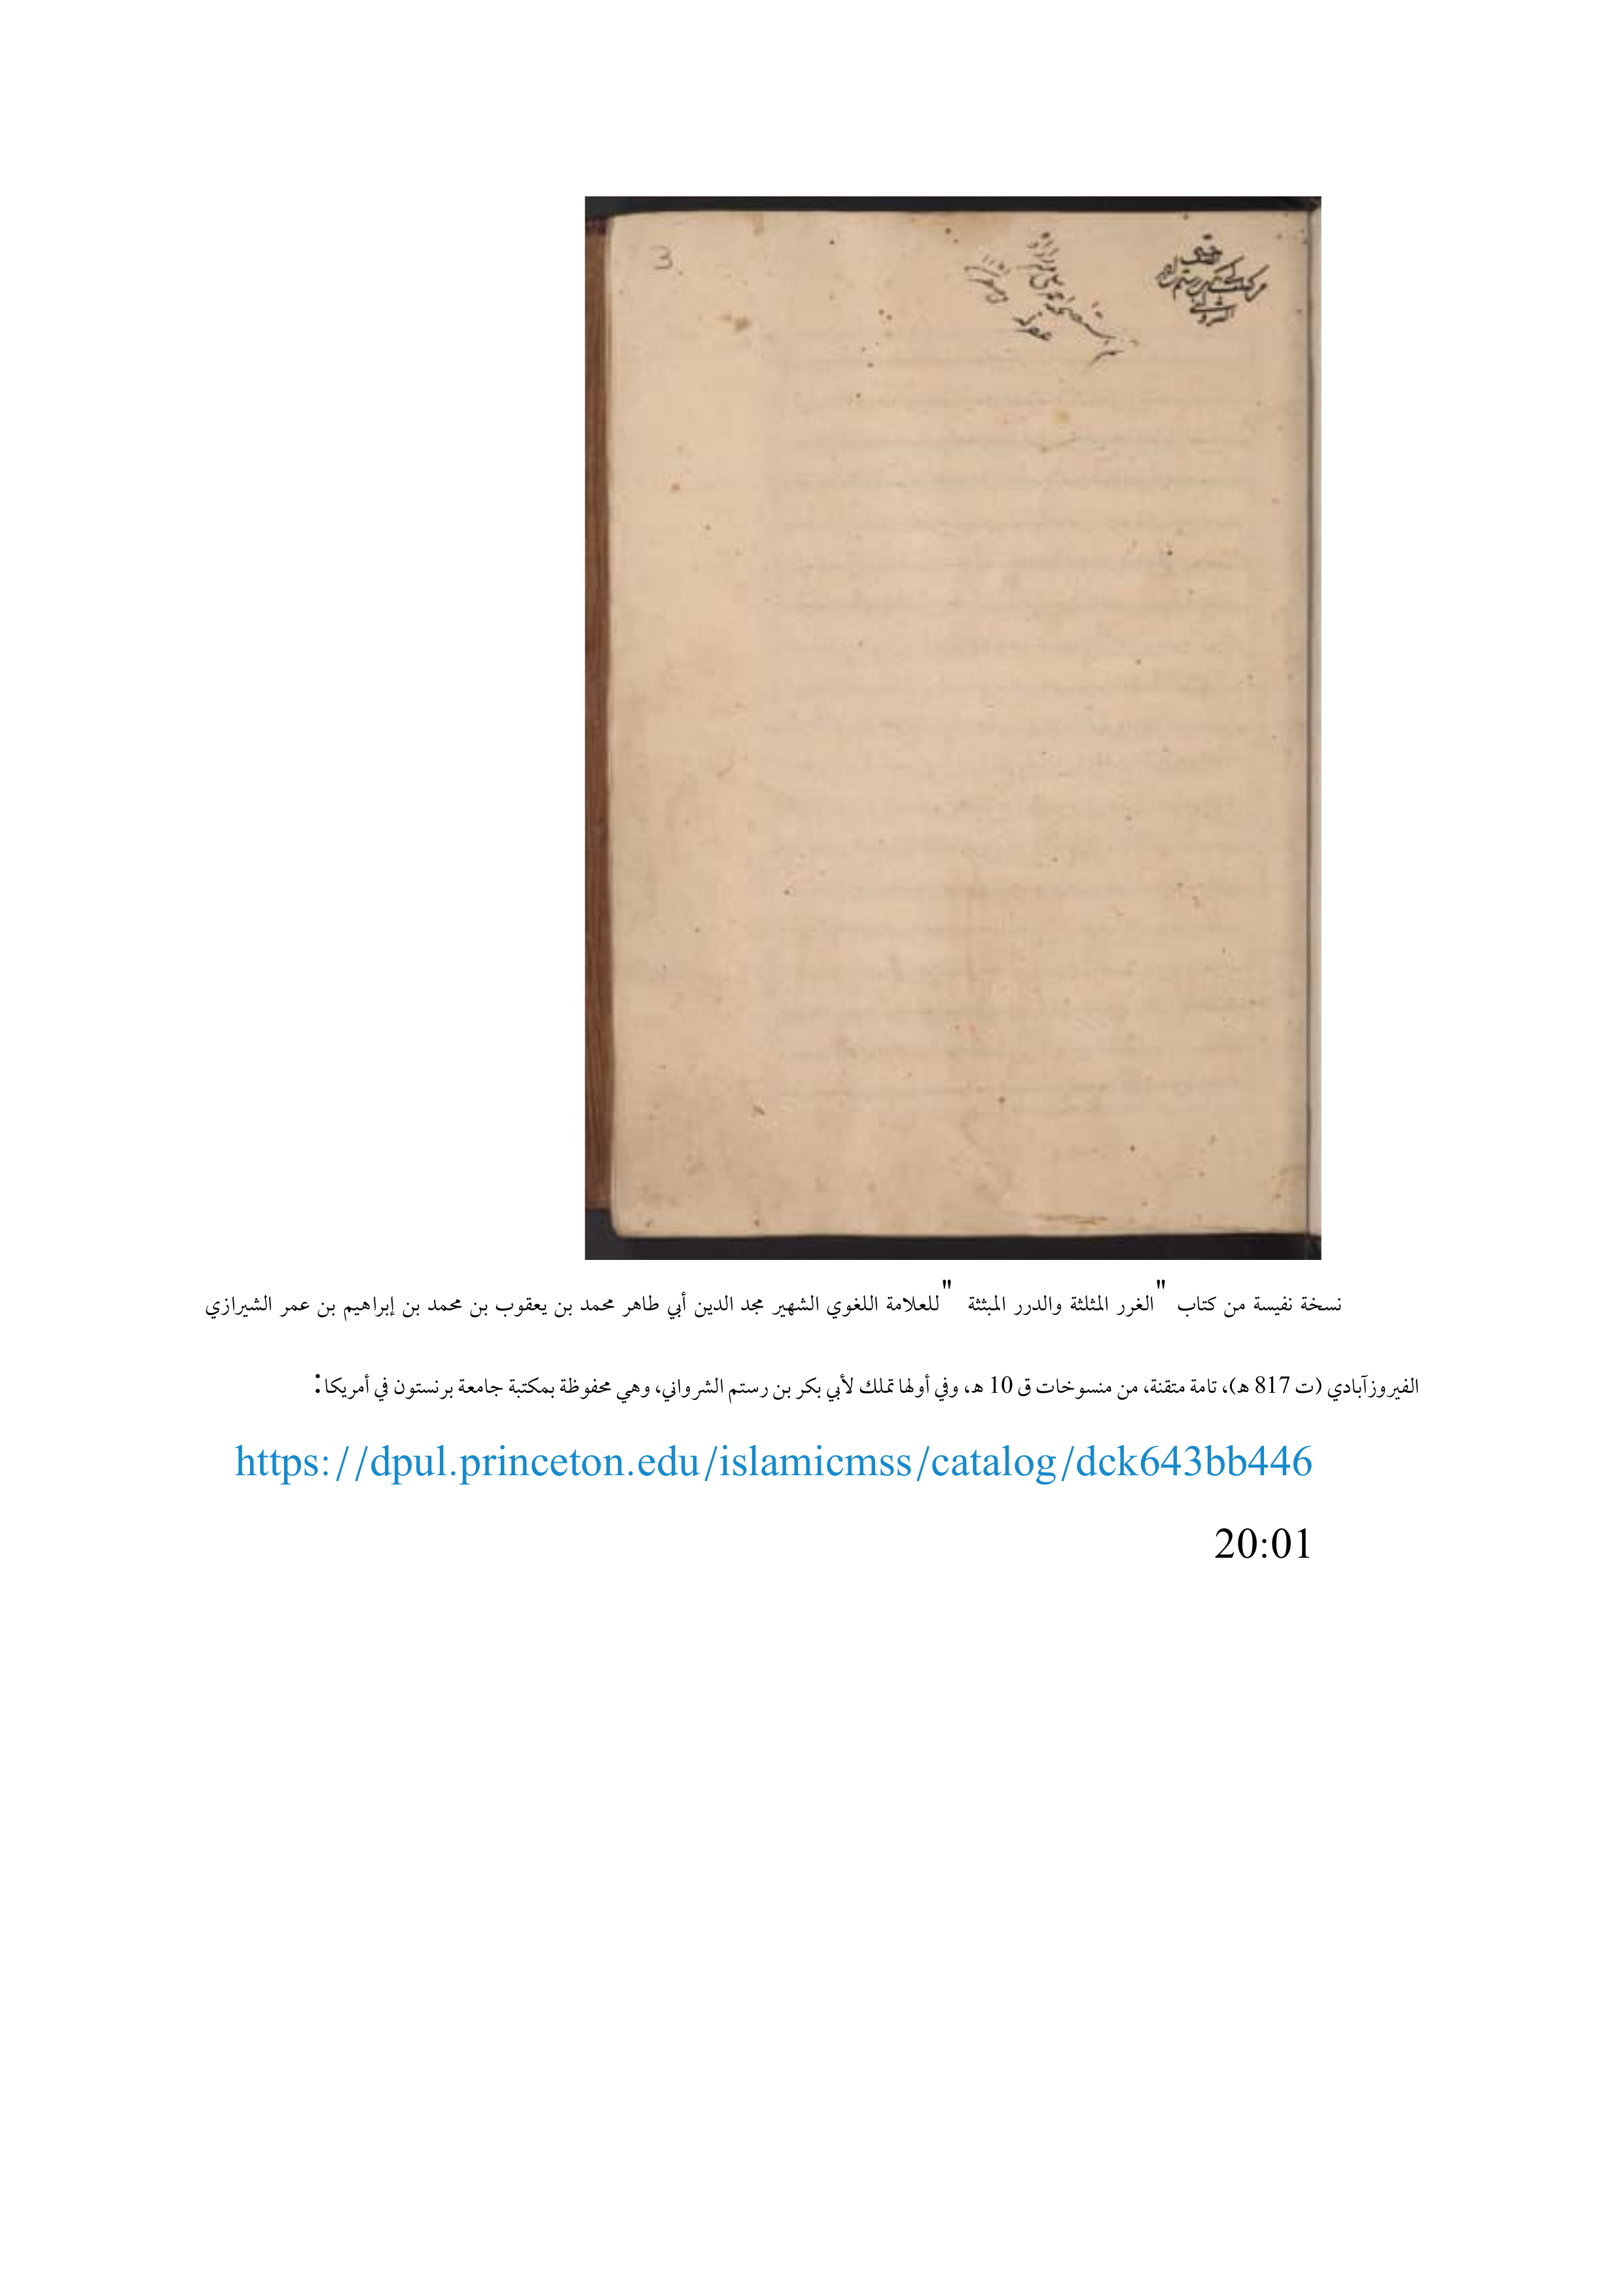 3
نسخة نفيسة من كتاب "الغرر المثلثة والدرر المبثثة "للعلامة اللغوي الشهير مجد الدين أبي طاهر محمد بن يعقوب بن محمد بن إبراهيم بن عمر الشيرازي
الفيروزآبادي (ت 817 هـ)، تامة متقنة، من منسوخات ق 10 هـ، وفي أولها تملك لأبي بكر بن رستم الشرواني، وهي محفوظة بمكتبة جامعة برنستون في أمريكا:
https://dpul.princeton.edu/islamicmss/catalog/dck643bb446
20:01